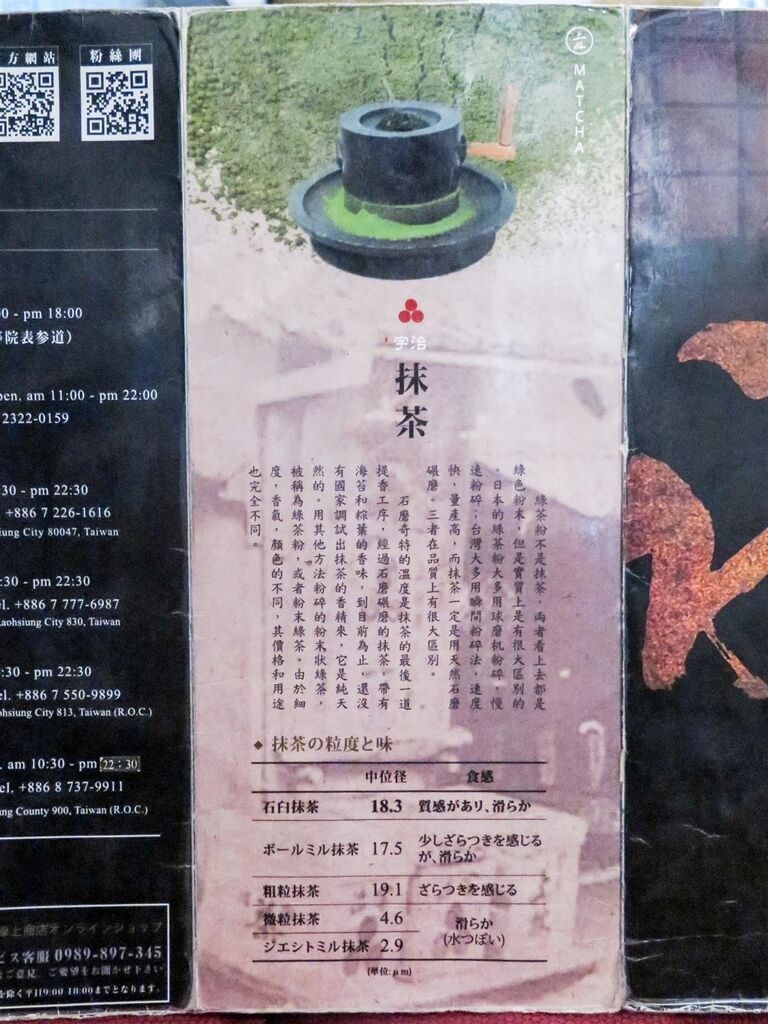 方網站
粉絲團
0 - pm 18:00
院表参道)
pen. am 11:00 - pm 22:00
2322-0159
:30 - pm 22:30
+886 7 226-1616
iung City 80047, Taiwan
:30 - pm 22:30
el. +886 7 777-6987
aohsiung City 830, Taiwan
:30 - pm 22:30
el. +886 7 550-9899
ohsiung City 813, Taiwan (R.O.C.)
. am 10:30 - pm 22:30
el. +886 8 737-9911
ng County 900, Taiwan (R.O.C.)
線上商店オンラインショップ
ビス客服 0989-897-345
ご意見、ご要望をお聞かせ下さい
を除く平日9:00 18:00までとなります。
MATCHA
宇治
抹茶
綠茶粉不是抹茶,兩者看上去都是
綠色粉末,但是實質上是有很大區別的
。日本的綠茶粉大多用球磨机粉碎,慢
速粉碎;台灣大多用瞬間粉碎法,速度
快,量產高,而抹茶一定是用天然石磨
碾磨。三者在品質上有很大區別。
石磨奇特的溫度是抹茶的最後一道
提香工序,經過石磨碾磨的抹茶,帶有
海苔和粽葉的香味,到目前為止,還沒
有國家調試出抹茶的香精來,它是純天
然的。用其他方法粉碎的粉末狀綠茶,
被稱為綠茶粉,或者粉末綠茶。由於細
度,香氣,顏色的不同,其價格和用途
也完全不同。
◆ 抹茶の粒度と味
中位径 食感
石臼抹茶 18.3 質感があり、滑らか
ボールミル抹茶 17.5 少しざらつきを感じる
が、滑らか
粗粒抹茶 19.1 ざらつきを感じる
微粒抹茶 4.6 滑らか
ジエシトミル抹茶 2.9 (水つぽい)
(単位: μm)